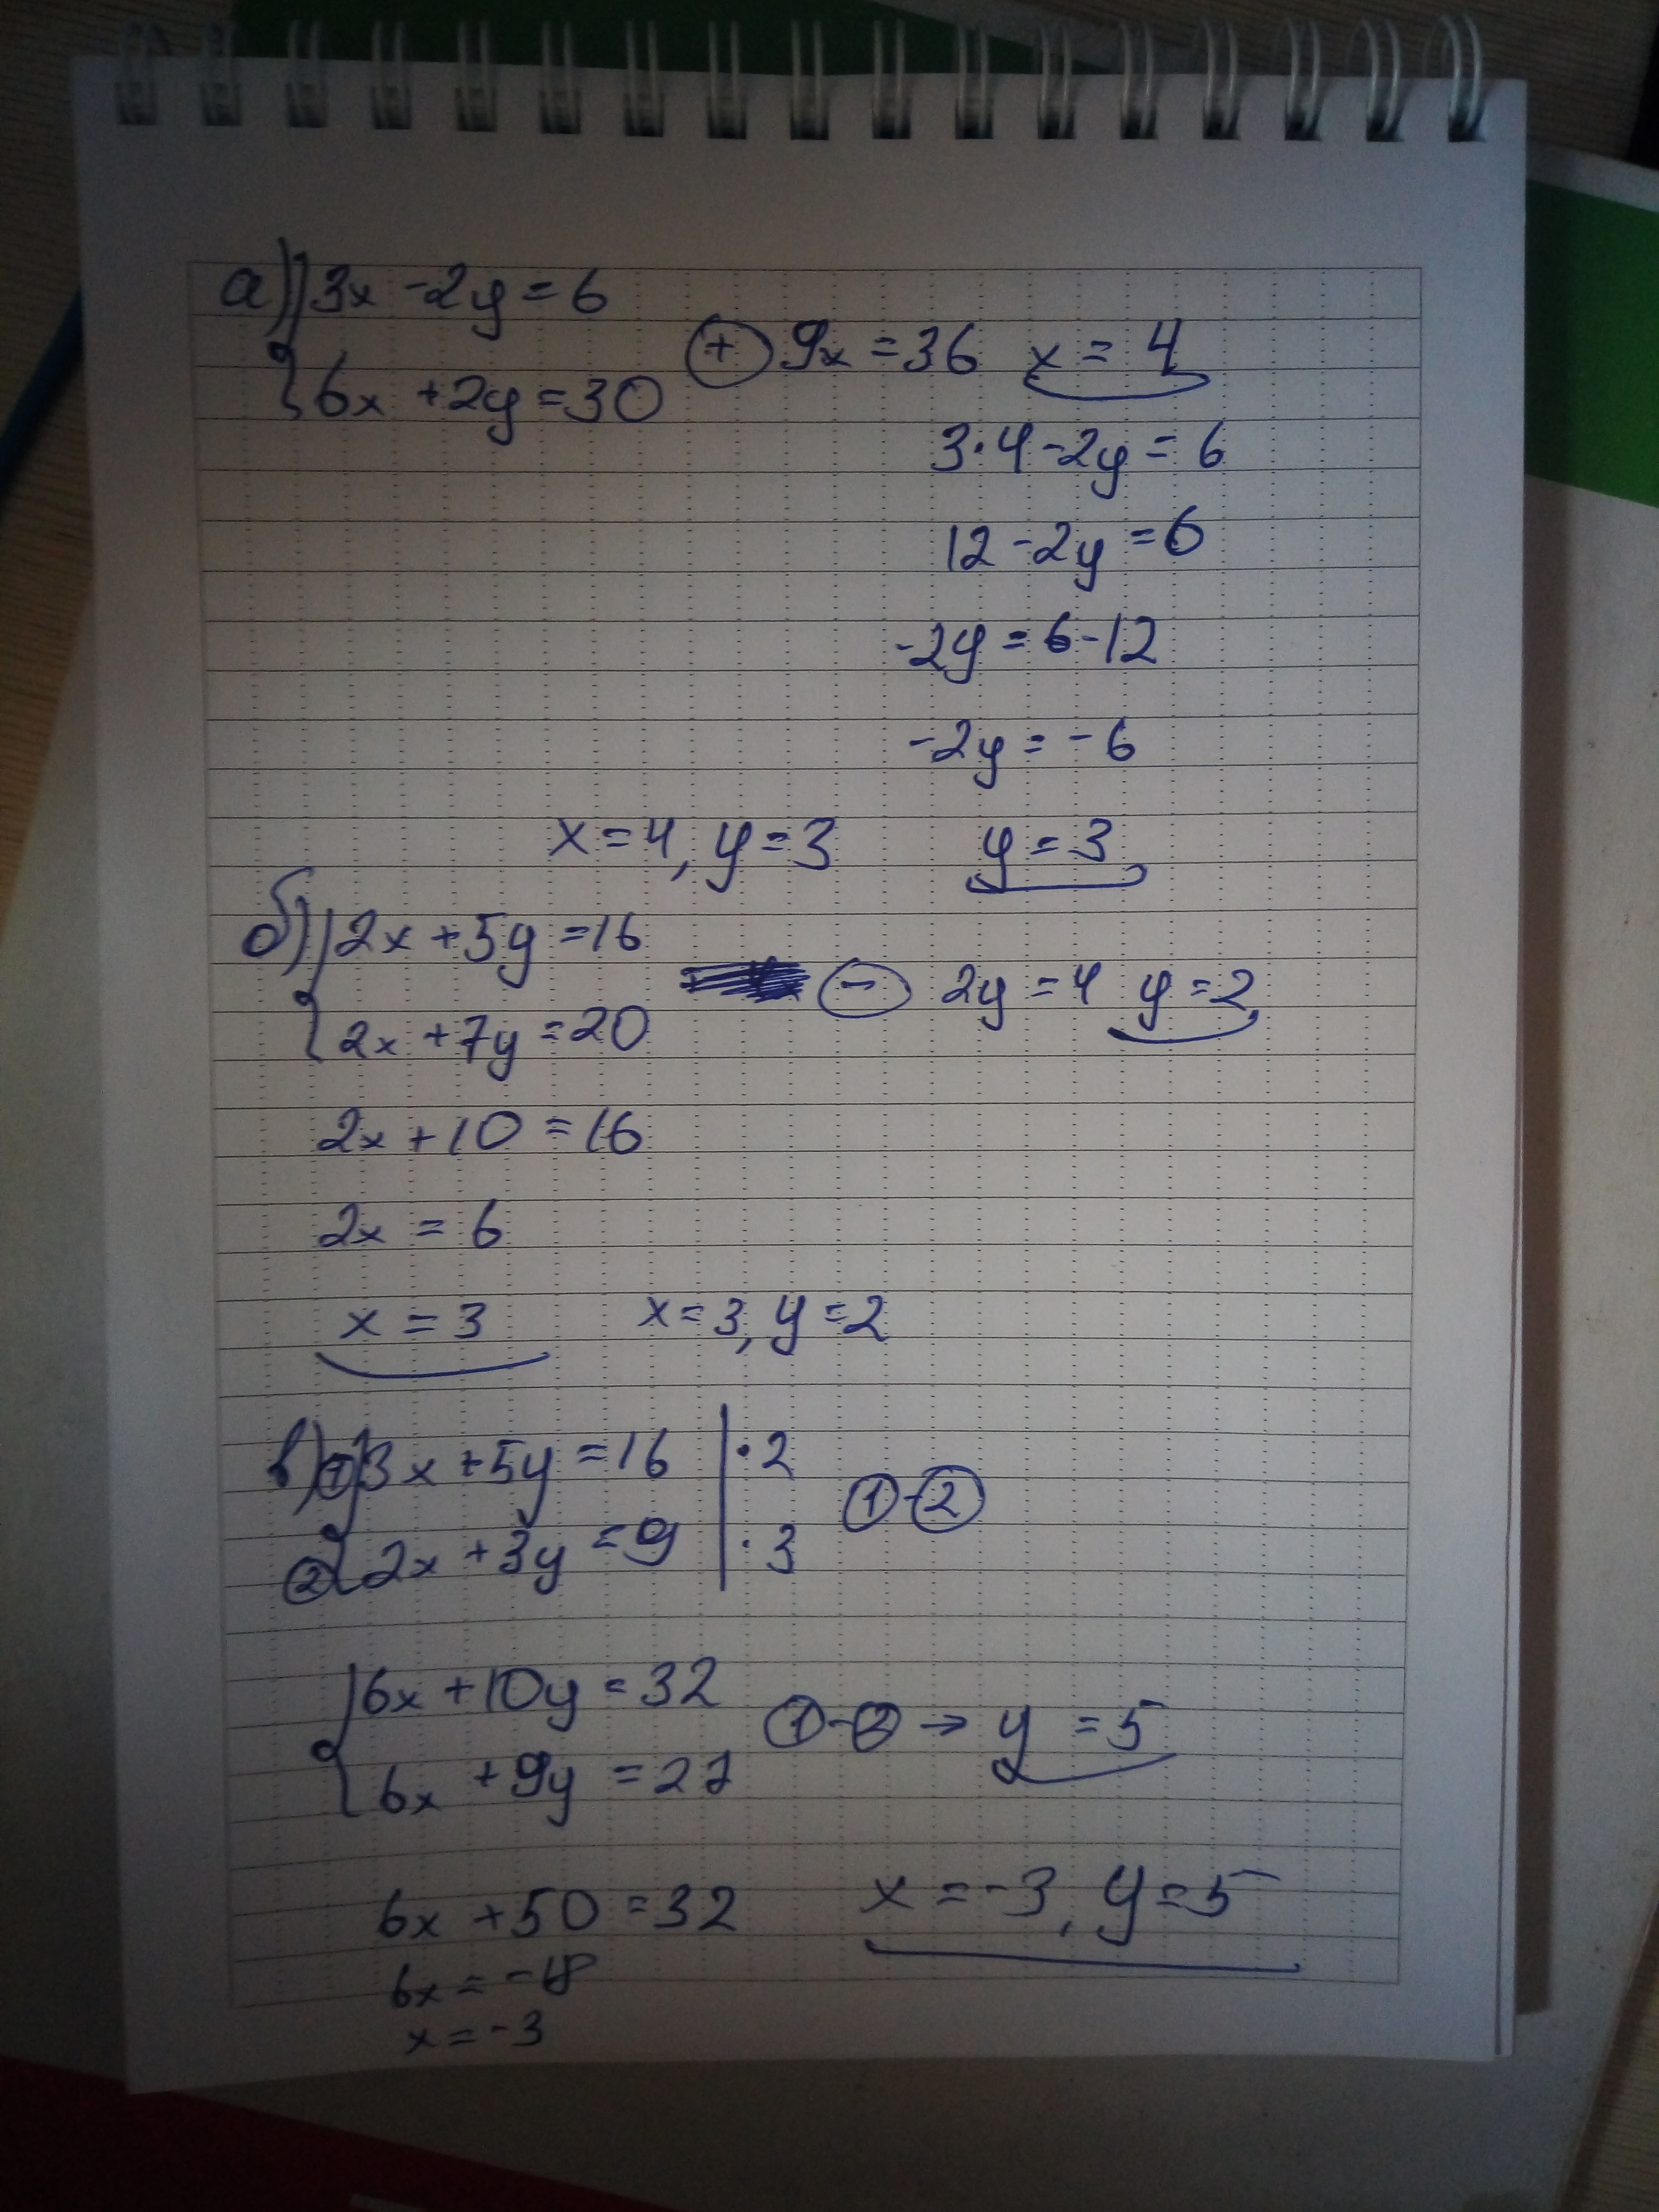 а) { 3x - 2y = 6
6x + 2y = 30
(+) 9x = 36 x = 4
3·4 - 2y = 6
12 - 2y = 6
-2y = 6 - 12
-2y = -6
x = 4, y = 3 y = 3
б) { 2x + 5y = 16
2x + 7y = 20
(-) 2y = 4 y = 2
2x + 10 = 16
2x = 6
x = 3 x = 3, y = 2
в) ① { 3x + 5y = 16 | ·2
② 2x + 3y = 9 | ·3
① - ②
{ 6x + 10y = 32
6x + 9y = 27
① - ② → y = 5
6x + 50 = 32 x = -3, y = 5
6x = -18
x = -3